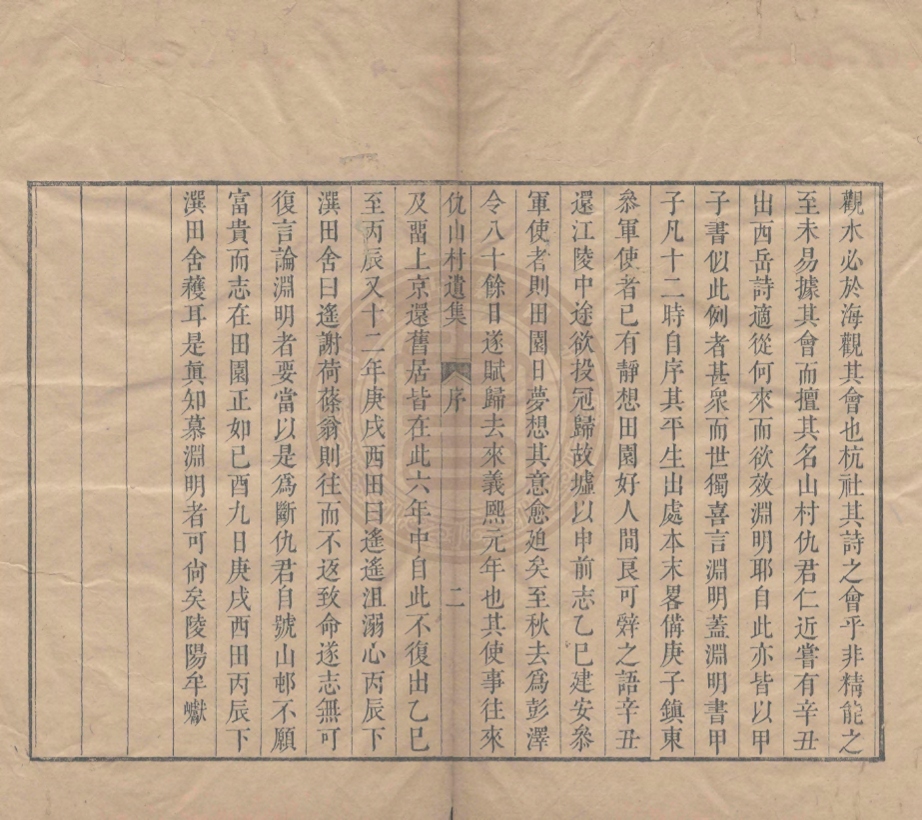 觀水必於海觀其會也杭社其詩之會乎非精能之
至未易據其會而擅其名山村仇君仁近嘗有辛丑
出西岳詩適從何來而欲效淵明耶自此亦皆以甲
子書似此例者甚衆而世獨喜言淵明蓋淵明書甲
子凡十二時自序其平生出處本末畧備庚子鎮東
叅軍使者已有靜想田園好人間良可辤之語辛丑
還江陵中途欲投冠歸故墟以申前志乙巳建安叅
軍使者則田園日夢想其意愈廹矣至秋去爲彭澤
令八十餘日遂賦歸去來義熙元年也其使事往來
仇山村遺集 序 二
及畱上京還舊居皆在此六年中自此不復出乙巳
至丙辰又十二年庚戌西田曰遙遙沮溺心丙辰下
潠田舍曰遙謝荷蓧翁則往而不返致命遂志無可
復言論淵明者要當以是爲斷仇君自號山邨不願
富貴而志在田園正如己酉九日庚戌西田丙辰下
潠田舍穫耳是眞知慕淵明者可尙矣陵陽牟巘